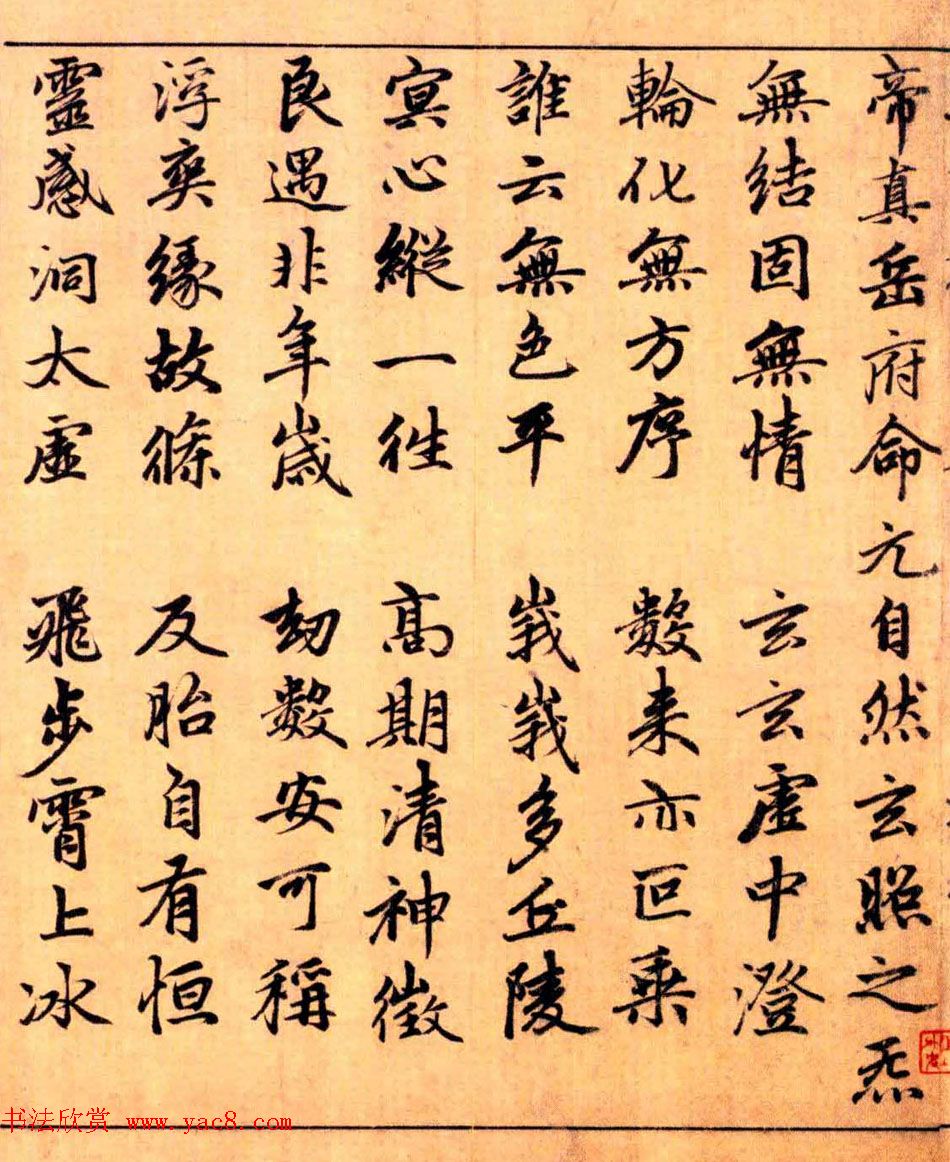 帝真岳府命元自然玄照之炁
無結固無情 玄玄虛中澄
輪化無方序 數来亦叵乗
誰云無色平 峩峩多丘陵
寘心縱一往 高期清神徵
良遇非年歲 劫數安可稱
浮爽緣故條 反胎自有恒
靈感洞太虛 飛步霄上冰
书法欣赏 www.yac8.com